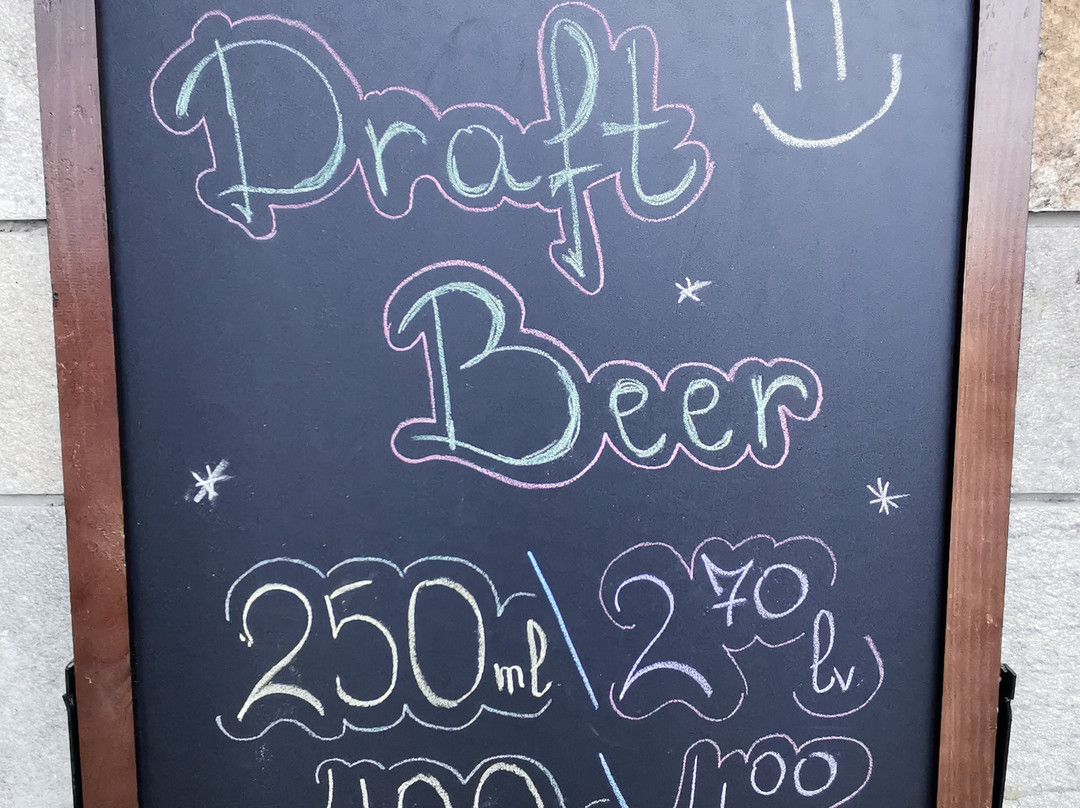 Draft
Beer
250 ml \ 2 70 lv